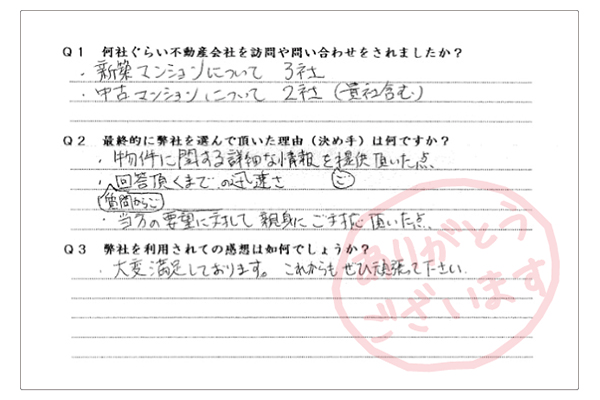 Q1 何社ぐらい不動産会社を訪問や問い合わせをされましたか?
・新築マンションについて 3社
・中古マンションについて 2社(貴社含む)
Q2 最終的に弊社を選んで頂いた理由(決め手)は何ですか?
・物件に関する詳細な情報を提供頂いた点
・回答頂くまでの迅速さ
ご
質問からご
・当方の要望に対して親身にご対応頂いた点
Q3 弊社を利用されての感想は如何でしょうか?
・大変満足しております。これからもぜひ頑張って下さい.
ありがとう
ございます